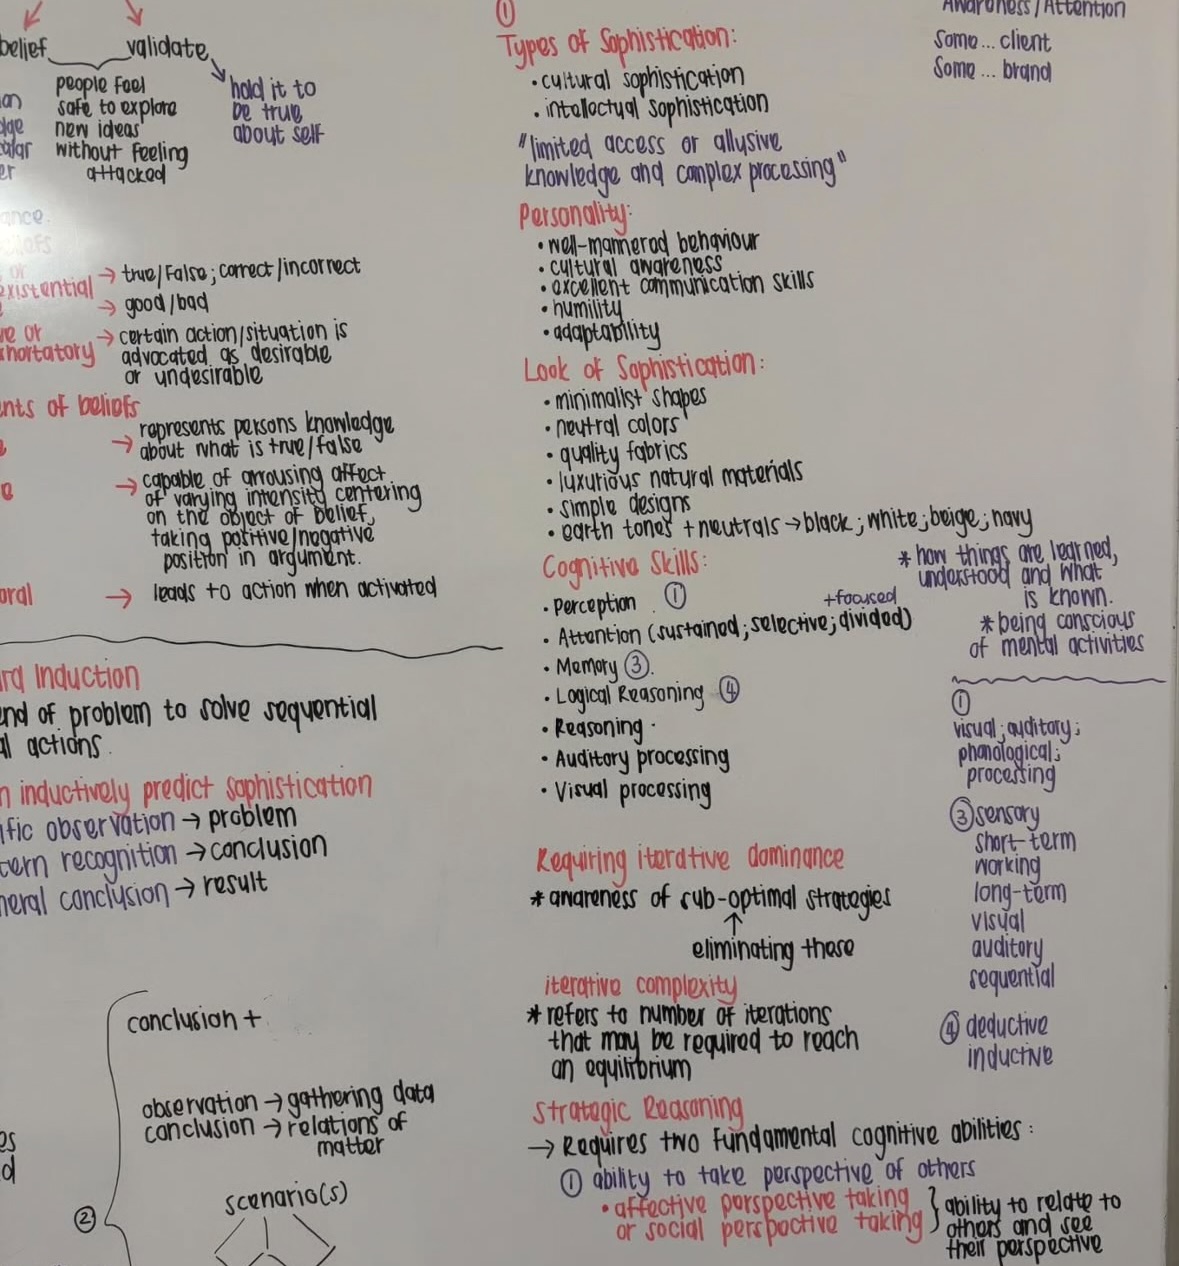 belief
validate
people feel
safe to explore
new ideas
without feeling
attacked
hold it to
be true
about self
→ true/false; correct/incorrect
→ good/bad
→ certain action/situation is
advocated as desirable
or undesirable
of beliefs
→ represents persons knowledge
about what is true/false
→ capable of arrousing affect
of varying intensity centering
on the object of belief,
taking potitive/negative
position in argument.
→ leads to action when activated
Induction
of problem to solve sequential
actions.
inductively predict sophistication
observation → problem
recognition → conclusion
conclusion → result
conclusion +
observation → gathering data
conclusion → relations of
matter
②
scenario(s)
①
Types of Sophistication:
• cultural sophistication
• intellectual sophistication
"limited access or allusive
knowledge and complex processing"
Personality:
• well-mannered behaviour
• cultural awareness
• excellent communication skills
• humility
• adaptability
Look of Sophistication:
• minimalist shapes
• neutral colors
• quality fabrics
• luxurious natural materials
• simple designs
• earth tones + neutrals → black; white; beige; navy
Cognitive Skills:
• Perception ①
+focused
• Attention (sustained; selective; divided)
• Memory ③.
• Logical Reasoning ④
• Reasoning
• Auditory processing
• Visual processing
Requiring iterative dominance
* awareness of sub-optimal strategies
↑
eliminating these
iterative complexity
* refers to number of iterations
that may be required to reach
an equilibrium
Strategic Reasoning
→ Requires two fundamental cognitive abilities:
① ability to take perspective of others
• affective perspective taking
or social perspective taking
} ability to relate to
others and see
their perspective
Awareness/Attention
Some... client
Some... brand
* how things are learned,
understood and what
is known.
* being conscious
of mental activities
①
visual; auditory;
phonological;
processing
③ sensory
short-term
working
long-term
visual
auditory
sequential
④ deductive
inductive